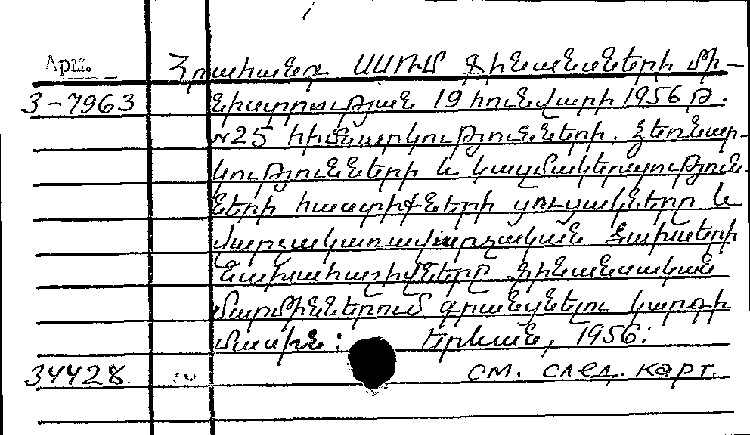 Арм.
Հրահանգ ՍՍՌՄ Ֆինանսների մի-
3-7963 նիստրության 19 հունվարի 1956 թ.
№25 հիմնարկությունների, ձեռնար-
կությունների և կազմակերպություն-
ների հաստիքների ցուցակները և
վարչակառավարչական ծախսերի
նախահաշիվները ֆինանսական
մարմիններում գրանցելու կարգի
մասին: Երևան, 1956:
34428 см. след. карт.